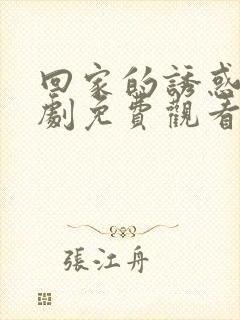 回家的誘惑
劇免費觀看
張江舟